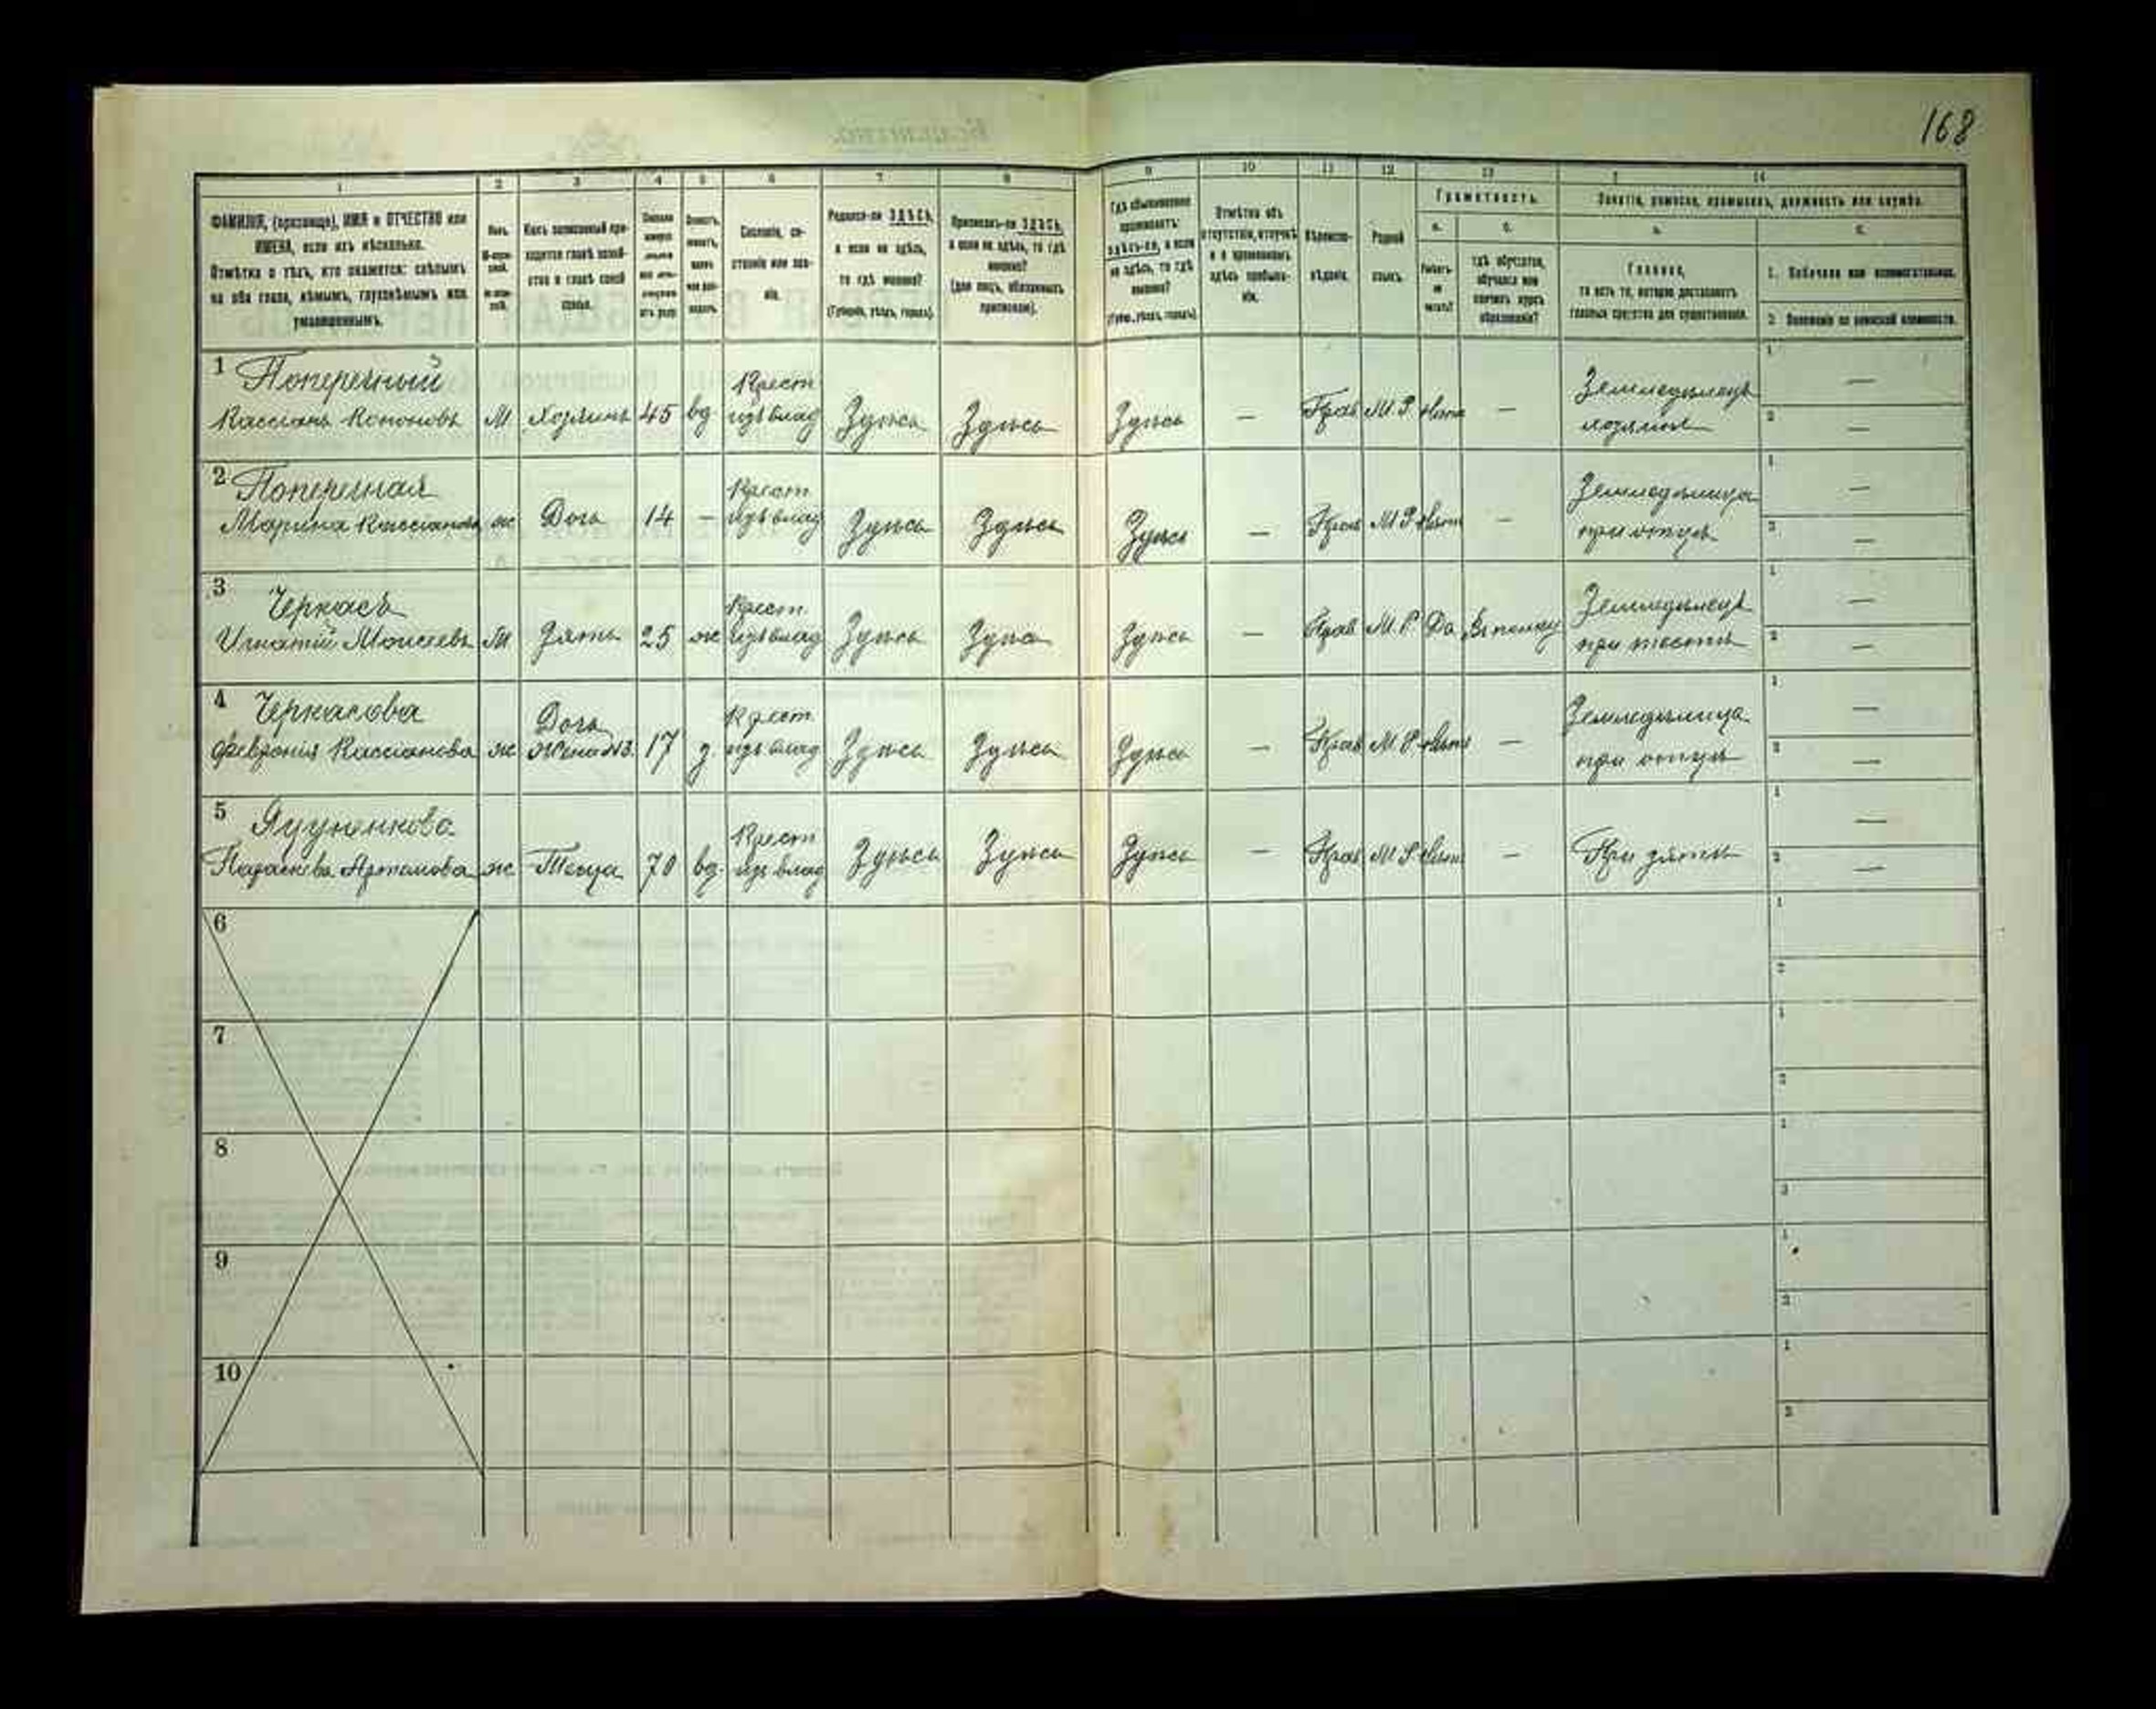 168
1 2 3 4 5 6 7 8 9 10 11 12 13 14
ФАМИЛІЯ, (прозвище), ИМЯ и ОТЧЕСТВО или
ИМЕНА, если ихъ нѣсколько.
Отмѣтка о тѣхъ, кто окажется: слѣпымъ
на оба глаза, нѣмымъ, глухонѣмымъ или
умалишеннымъ.
Какъ записанный при-
ходится главѣ хозяй-
ства и главѣ своей
семьи.
Сословіе, со-
стояніе или зва-
ніе.
Родился-ли ЗДѢСЬ,
а если не здѣсь,
то гдѣ именно?
(Губернія, уѣздъ, городъ).
Приписанъ-ли ЗДѢСЬ,
а если не здѣсь, то гдѣ
именно?
(для лицъ, обязанныхъ
припискою).
Гдѣ обыкновенно
проживаетъ:
здѣсь-ли, а если
не здѣсь, то гдѣ
именно?
(Губ., уѣздъ, городъ).
Отмѣтка объ
отсутствіи, отлучкѣ
и о временномъ
здѣсь пребыва-
ніи.
Вѣроиспо-
вѣданіе.
Родной
языкъ.
Грамотность.
а. б.
Умѣетъ-
ли
читать?
гдѣ обучается,
обучался или
кончилъ курсъ
образованія?
Занятіе, ремесло, промыселъ, должность или служба.
а. б.
Главное,
то есть то, которое доставляетъ
главныя средства для существованія.
1. Побочное или вспомогательное.
2. Положеніе по воинской повинности.
1 Поперечный Крест Земледѣлецъ 1 —
Кассіанъ Кононовъ М Хозяинъ 45 вд изъ влад Здѣсь Здѣсь Здѣсь — Прав М.Р. Нѣтъ — хозяинъ 2 —
2 Поперечная Крест Земледѣлица 1 —
Марина Кассіанова ж Дочь 14 — изъ влад Здѣсь Здѣсь Здѣсь — Прав М.Р Нѣтъ — при отцѣ 2 —
3 Черкасъ Крест Земледѣлецъ 1 —
Игнатій Моисеевъ М Зять 25 ж изъ влад Здѣсь Здѣсь Здѣсь — Прав М.Р Да при тестѣ 2 —
4 Черкасова Дочь Крест Земледѣлица 1 —
Февронія Кассіанова ж Жена №3. 17 з. изъ влад Здѣсь Здѣсь Здѣсь — Прав М.Р Нѣтъ — при отцѣ 2 —
5 Крест 1 —
Параскева Артамова ж Теща 70 вд. изъ влад Здѣсь Здѣсь Здѣсь — Прав М.Р Нѣтъ — При зятѣ 2 —
6 1
2
7 1
2
8 1
2
9 1
2
10 1
2